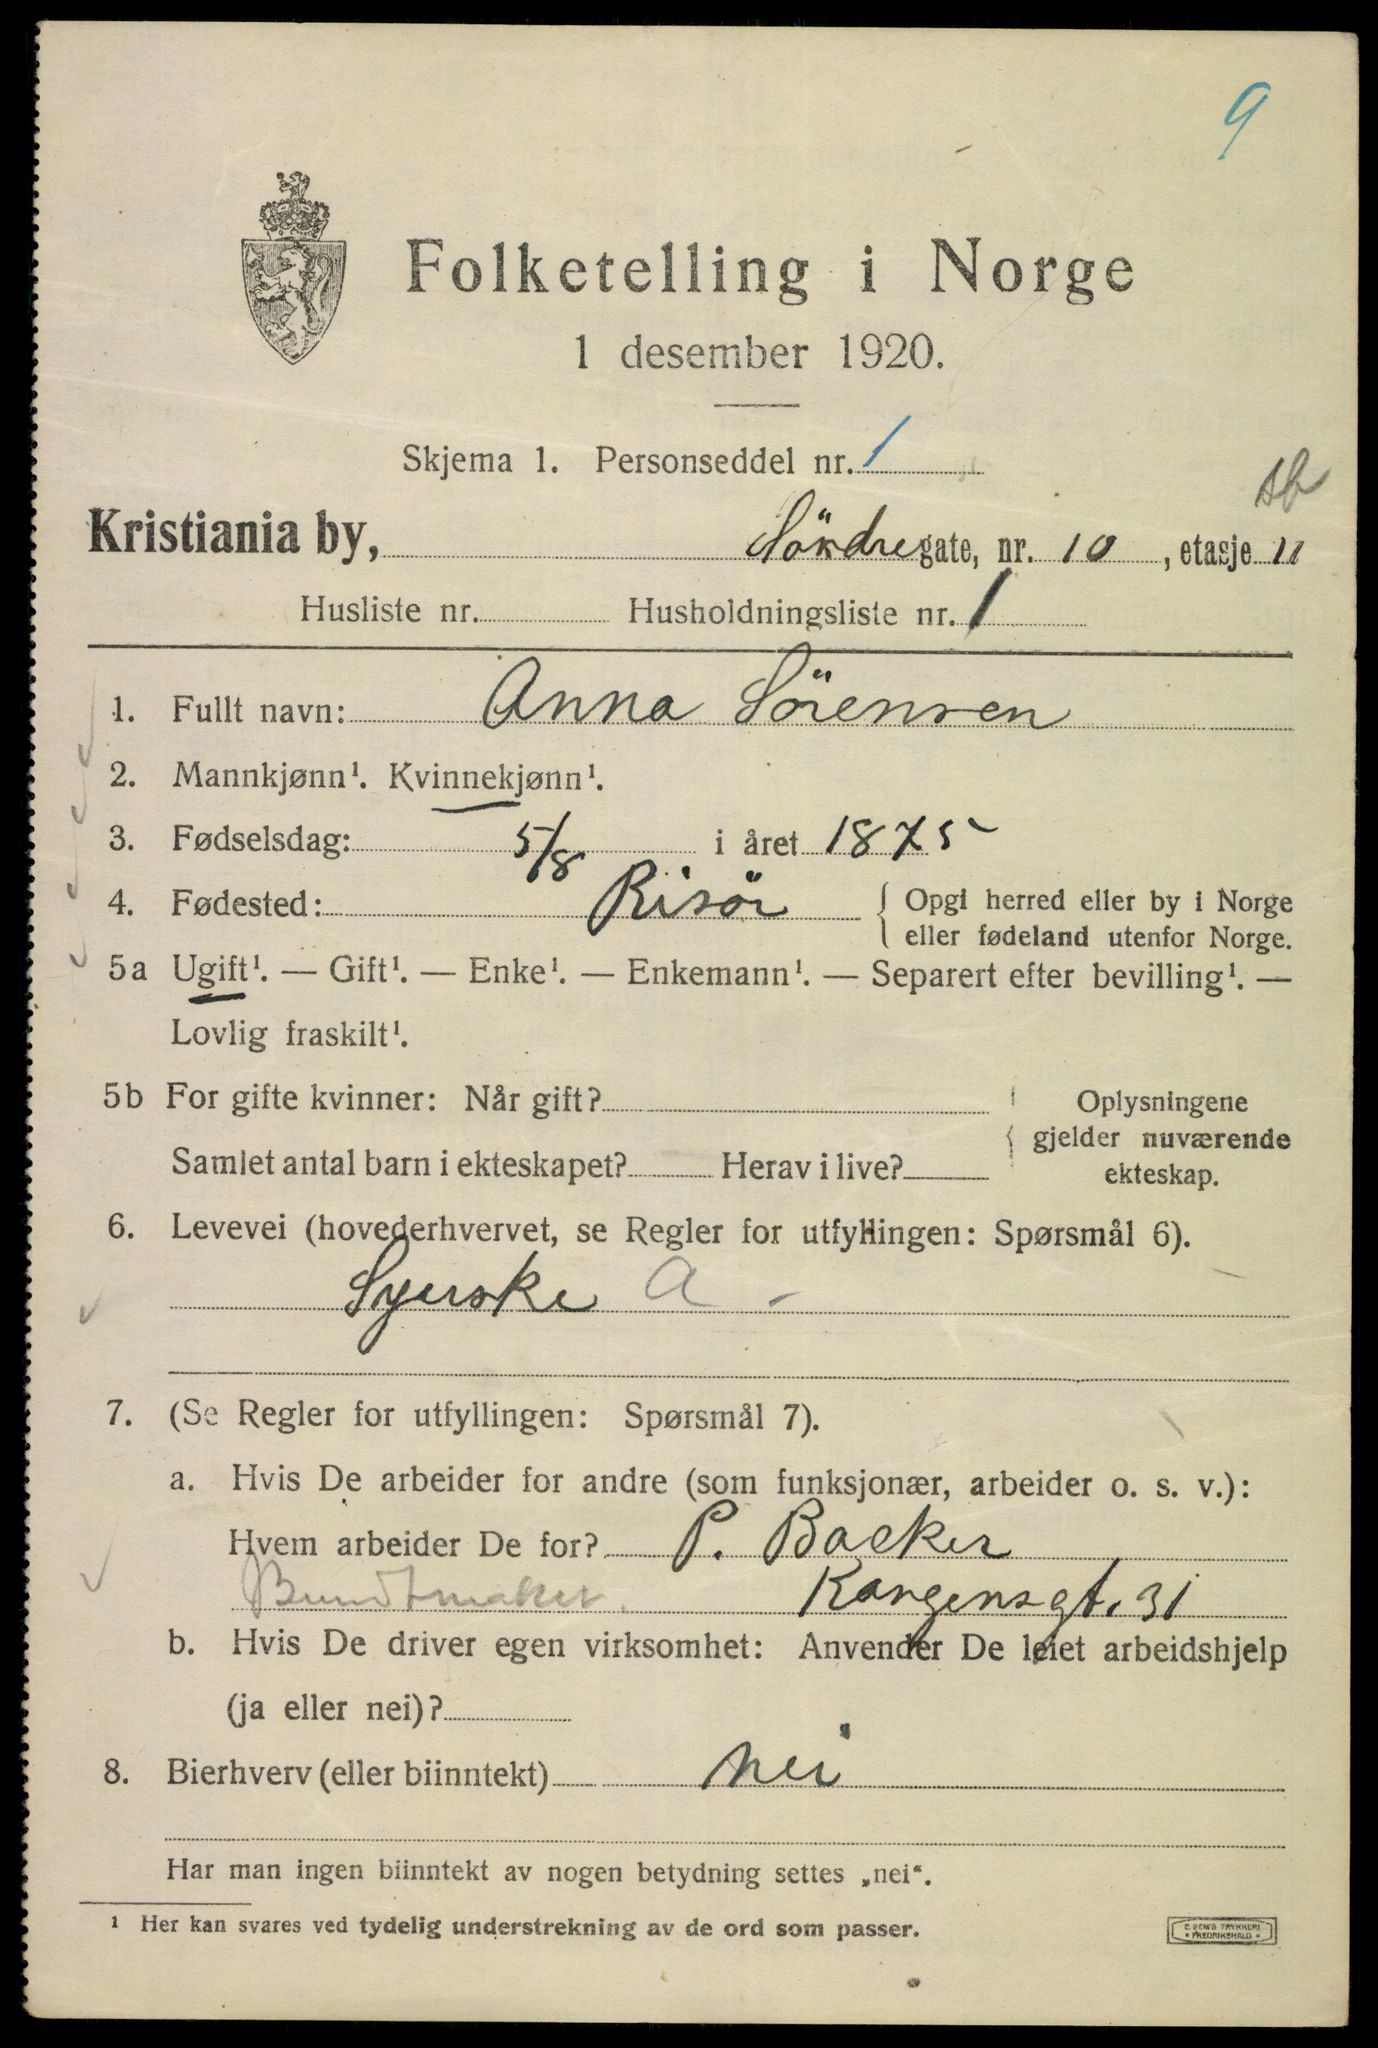 9
Folketelling i Norge
1 desember 1920.
Skjema 1. Personseddel nr. 1
Kristiania by, Söndre gate, nr. 10, etasje II
Husliste nr. Husholdningsliste nr. 1
1. Fullt navn: Anna Sörensen
2. Mannkjønn¹. Kvinnekjønn¹.
3. Fødselsdag: 5/8 i året 1875
4. Fødested: Risör { Opgi herred eller by i Norge
eller fødeland utenfor Norge.
5a Ugift¹. — Gift¹. — Enke¹. — Enkemann¹. — Separert efter bevilling¹. —
Lovlig fraskilt¹.
5b For gifte kvinner: Når gift? Oplysningene
gjelder nuværende
Samlet antal barn i ekteskapet? Herav i live? ekteskap.
6. Levevei (hovederhvervet, se Regler for utfyllingen: Spørsmål 6).
Syerske A -
7. (Se Regler for utfyllingen: Spørsmål 7).
a. Hvis De arbeider for andre (som funksjonær, arbeider o. s. v.):
Hvem arbeider De for? P. Backer
Bundtmaker. Kongensgt. 31
b. Hvis De driver egen virksomhet: Anvender De leiet arbeidshjelp
(ja eller nei)?
8. Bierhverv (eller biinntekt) nei
Har man ingen biinntekt av nogen betydning settes „nei“.
¹ Her kan svares ved tydelig understrekning av de ord som passer.
E SEM'S TRYKKERI
FREDRIKSHALD